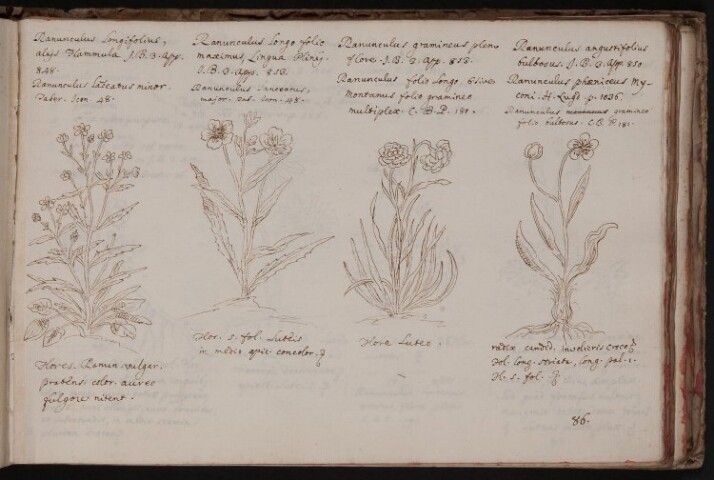 Ranunculus Longifolius,
alijs Flammula. J. B. 3. App.
848.
Ranunculus Lanceatus minor.
Taber. Icon 48.
Ranunculus Longo folio
maximus, Lingua Plinij.
J. B. 3. App. 853.
Ranunculus Lanceatus,
major. Tab. Icon. 48.
Ranunculus gramineus pleno
flore. J. B. 3. App. 858.
Ranunculus folio Longo, Sive
Montanus folio gramineo
multiplex. C. B. P. 181.
Ranunculus angustifolius
bulbosus. J. B. 3. App. 850.
Ranunculus phœniceus My-
coni. H. Lugd. p. 1036.
Ranunculus montanus gramineo
folio bulbosus. C. B. P. 181.
Flores. Ranun. vulgar.
pratens. color. aureo
fulgore nitent.
Flor. 5. fol. Luteis
in medio apic. concolor.
Flore Luteo.
radix candid. involucris croco
Fol. long. striata, long. pal. 1.
Fl. 5. fol.
86.